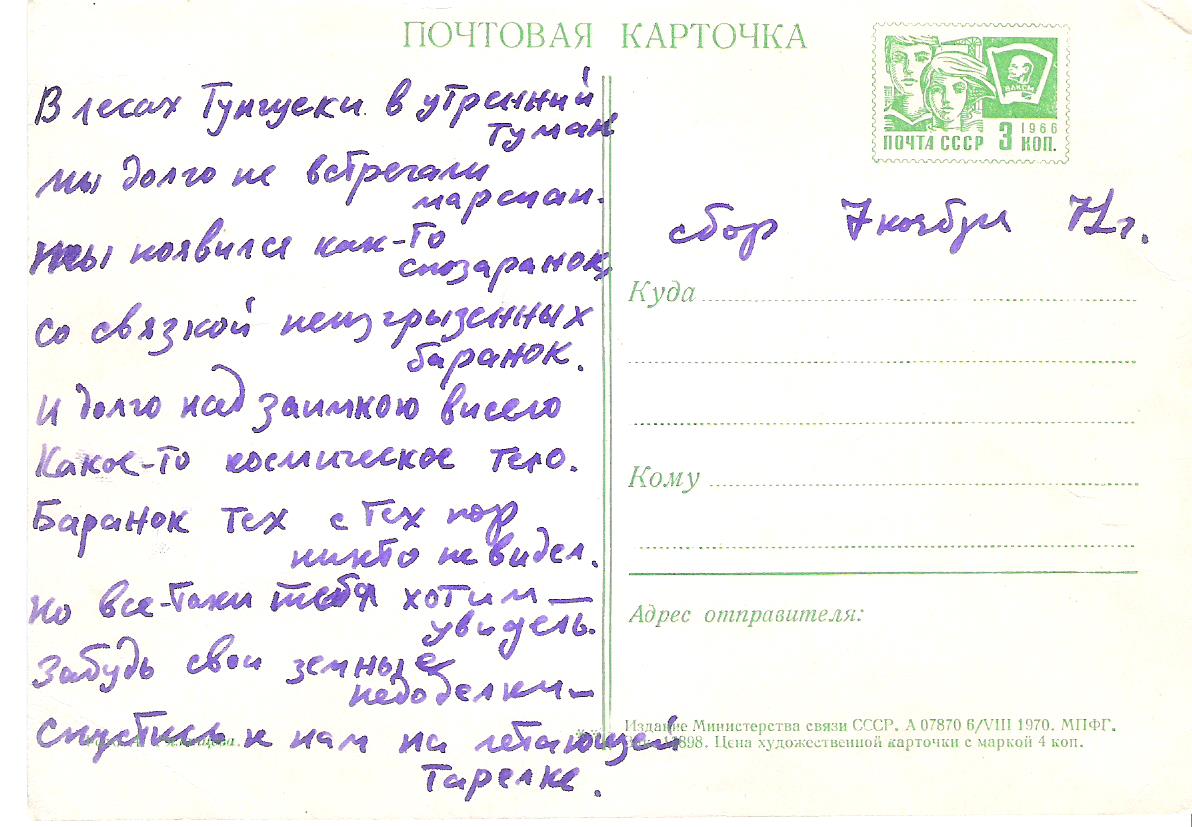 ПОЧТОВАЯ КАРТОЧКА
ВЛКСМ
1966
ПОЧТА СССР 3 КОП.
В лесах Тунгуски в утренний
туман
мы долго не встречали
марсиан.
ты появился как-то
спозаранок,
со связкой неизгрызенных
баранок.
И долго над заимкою висело
Какое-то космическое тело.
Баранок тех с тех пор
никто не видел.
Но все-таки тебя хотим —
увидеть.
Забудь свои земные
недоделки —
Спустись к нам на летающей
тарелке.
сбор 7 ноября 71г.
Куда
Кому
Адрес отправителя:
Издание Министерства связи СССР. А 07870 6/VIII 1970. МПФГ.
898. Цена художественной карточки с маркой 4 коп.